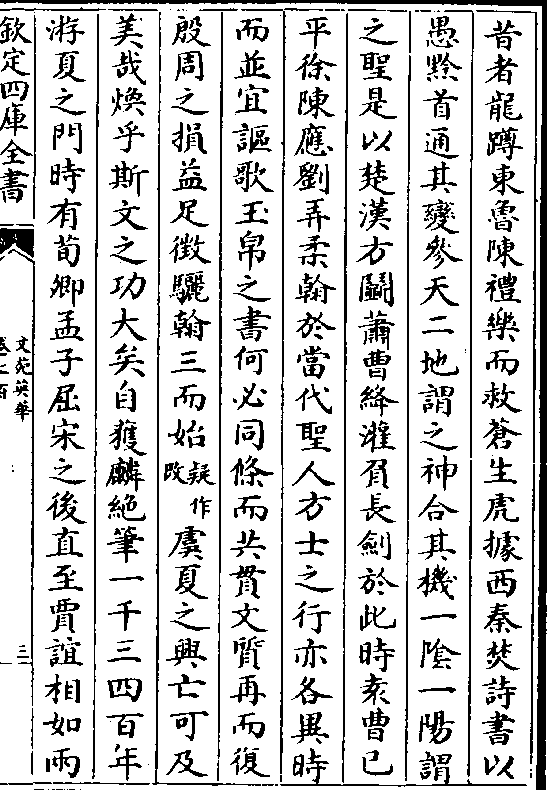 昔者龍蹲東魯陳禮樂而救蒼生虎據西秦焚詩書以
愚黔首通其變參天二地謂之神合其機一陰一陽謂
之聖是以楚漢方鬭蕭曹絳灌屓長劍於此時袁曹已
平徐陳應劉弄柔翰於當代聖人方士之行亦各異時
而並宜謳歌玉帛之書何必同條而共貫文質再而復
殷周之損益足徵驪翰三而始疑作改虞夏之興亡可及
美哉煥乎斯文之功大矣自獲麟絶筆一千三四百年
游夏之門時有荀卿孟子屈宋之後直至賈誼相如兩
欽定四庫全書
文苑英華
卷七百
三